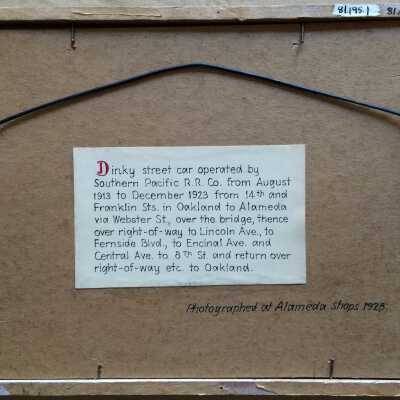 81.195.1
Dinky street car operated by
Southern Pacific R.R. Co. from August
1913 to December 1923 from 14th and
Franklin Sts. in Oakland to Alameda
via Webster St., over the bridge, thence
over right-of-way to Lincoln Ave., to
Fernside Blvd., to Encinal Ave. and
Central Ave. to 8th St. and return over
right-of-way etc. to Oakland.
Photographed at Alameda shops 1928.